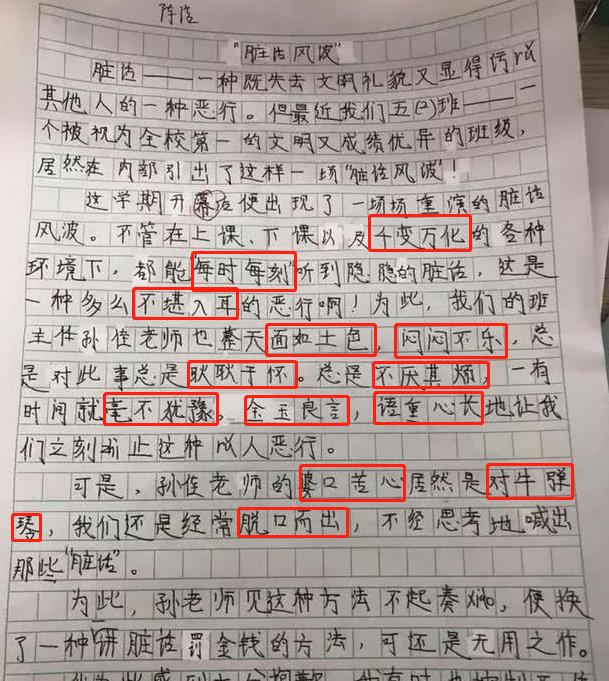 陈浩
"脏话风波"
脏话——一种既失去文明礼貌又显得污ru
其他人的一种恶行。但最近我们五(2)班——一
个被视为全校第一的文明又成绩优异的班级,
居然在内部引出了这样一场"脏话风波"!
这学期开幕后便出现了一场场重演的脏话
风波。不管在上课、下课以及千变万化的各种
环境下,都能"每时每刻"听到隐隐的脏话,这是
一种多么不堪入耳的恶行啊!为此,我们的班
主任孙佳老师也整天面如土色,闷闷不乐,总
是对此事总是耿耿于怀。总是不厌其烦,一有
时间就毫不犹豫,金玉良言,语重心长地让我
们立刻停止这种以人恶行。
可是,孙佳老师的婆口苦心居然是对牛弹
琴,我们还是经常脱口而出,不经思考地喊出
那些"脏话"。
为此,孙老师见这种方法不起奏xiao,便换
了一种"讲脏话罚金钱的方法,可还是无用之作。